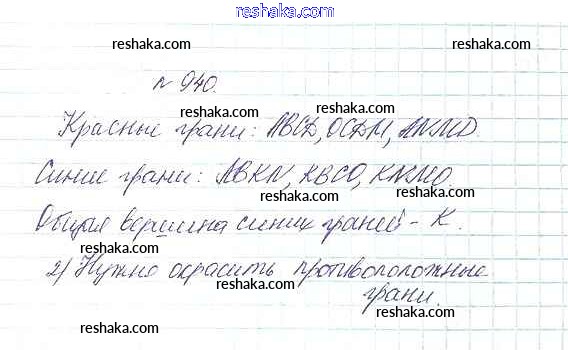 reshaka.com
reshaka.com reshaka.com
№ 940.
reshaka.com
Красные грани: ABCD, OCDM, ANMD.
reshaka.com reshaka.com
Синие грани: ABKN, KBCO, KNMO
reshaka.com
Общая вершина синих граней - K.
reshaka.com reshaka.com
2) Нужно окрасить противоположные
reshaka.com
грани.
reshaka.com reshaka.com